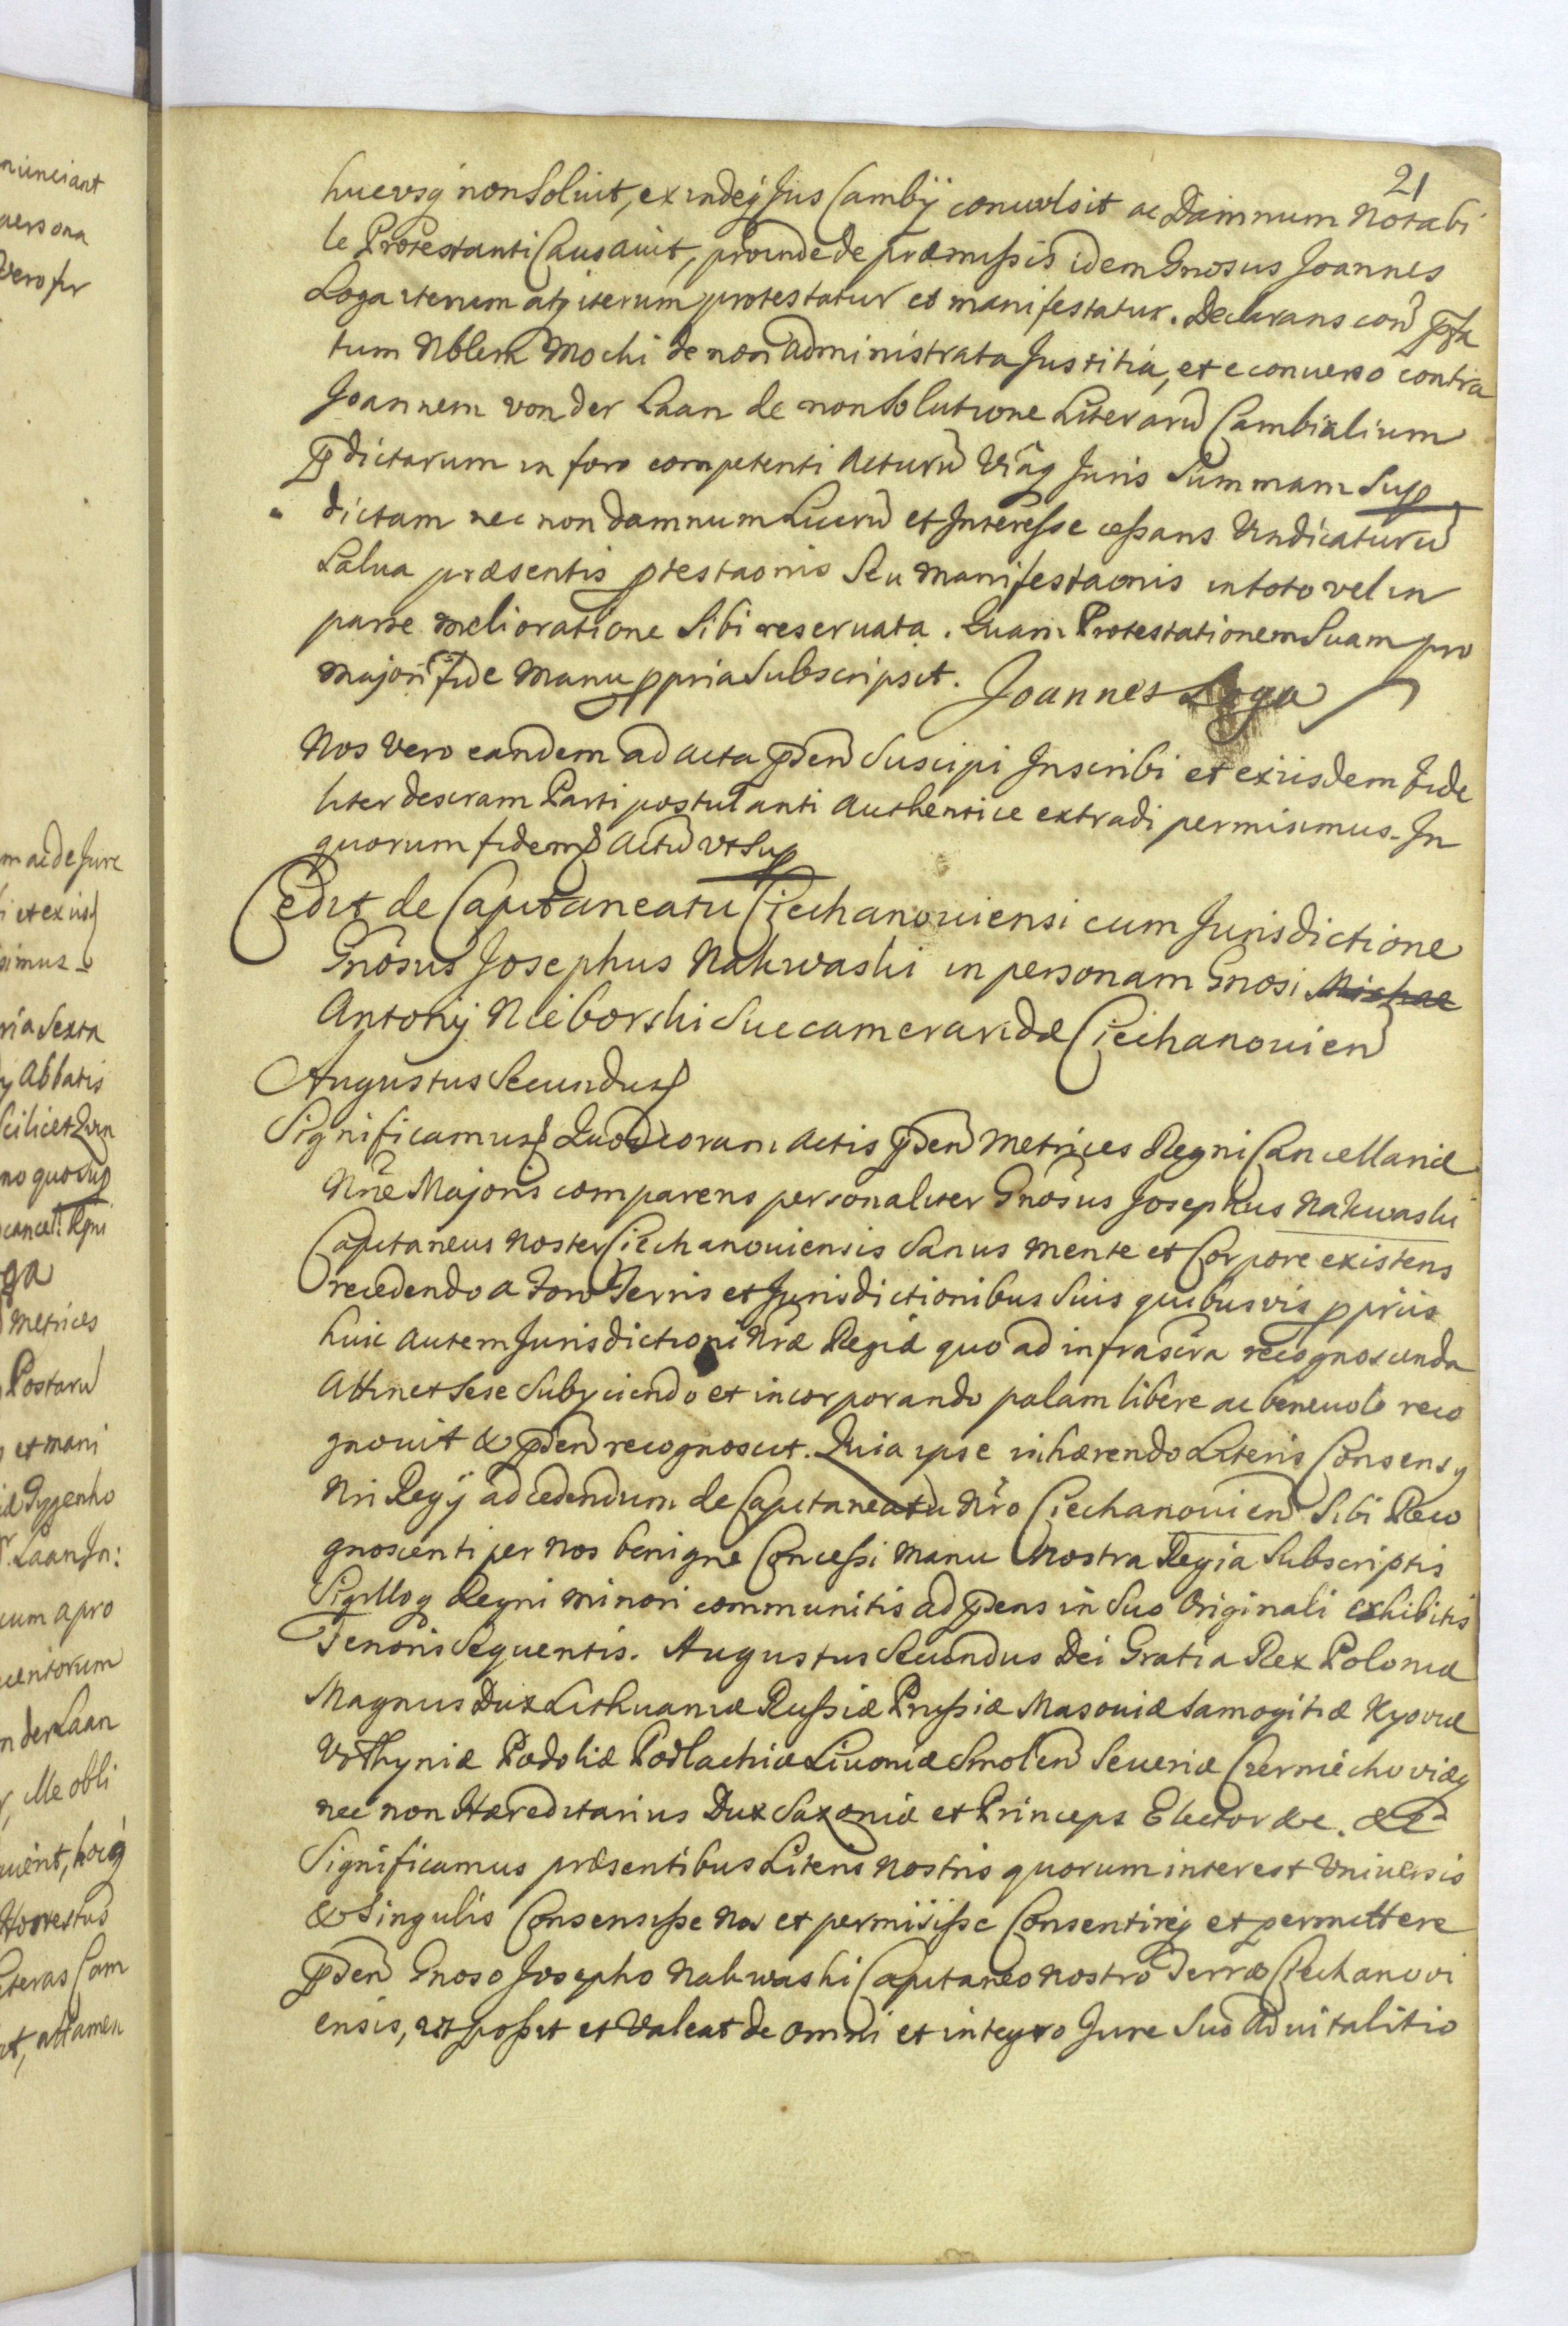 21
hucusq́ non Soluit, ex indeq́ Jus Cambij conuulsit ac Damnum Notabi
le Protestanti Causauit, proinde de præmissis idem Gnosus Joannes
Loga iterum atq́ iterum protestatur et manifestatur. Declarans con̄ p̄fa
tum Nblem Mochi de non administrata Justitia, et e conuerso contra
Joannem von der Laan de non Solutione Literarū Cambialium
p̄dictarum in foro competenti Acturū Viaq́ Juris Summam Sup
dictam nec non damnum Lucrū et Interesse cessans Vindicaturū
Salua præsentis ptestaonis Seu Manifestaonis in toto vel in
parte melioratione Sibi reseruata. Quam Protestationem Suam pro
majori fide Manu ppria Subscripsit. Joannes Loga
Nos Vero eandem ad Acta p̄den̄ Suscipi Inscribi et ex iisdem fide
liter descram Parti postulanti Authentice extradi permisimus. In
quorum fidem Actū vt Sup
Cedit de Capitaneatu Ciechanouiensi cum Jurisdictione
Gnōsus Josephus Nakwaski in personam Gnosi Michae
Antonij Nieborski Succameraridæ Ciechanouien̄
Augustus Secundus
Significamus Quod coram Actis p̄den̄ Metrices Regni Cancellariæ
Nr̄æ Majoris comparens personaliter Gnōsus Josephus Nakwaski
Capitaneus Noster Ciechanouiensis Sanus Mente et Corpore existens
recedendo a Foro Terris et Jurisdictionibus Suis quibusvis ppriis
huic Autem Jurisdictioni Nr̄æ Regiæ quo ad infrascra recognoscenda
Attinet Sese Subyciendo et incorporando palam libere ac beneuole reco
gnouit & p̄den̄ recognoscit. Quia ipse inhærendo Literis Consensq́
Nri Regij ad cedendum de Capitaneatu Nr̄o Ciechanouien̄ Sibi Reco
gnoscenti per Nos benigne Concessi Manu Nostra Regia Subscriptis
Sigilloq́ Regni Minori communitis ad p̄dens in Suo Originali exhibitis
Tenoris Sequentis. Augustus Secundus Dei Gratia Rex Poloniæ
Magnus Dux Lithuaniæ Russiæ Prussiæ Masouiæ Samogitiæ Kyouiæ
Volhyniæ Podoliæ Podlachiæ Liuoniæ Smolen̄ Seueriæ Czerniechouiæq́
nec non Hæreditarius Dux Saxoniæ et Princeps Elector &c. &c
Significamus præsentibus Literis Nostris quorum interest Vniuersis
& Singulis Consensisse Nos et permisisse Consentireq́ et permittere
p̄den̄ Gnoso Josepho Nakwaski Capitaneo Nostro Terræ Ciechanoui
ensis, vt possit et Valeat de omni et integro Jure Suo Aduitalitio